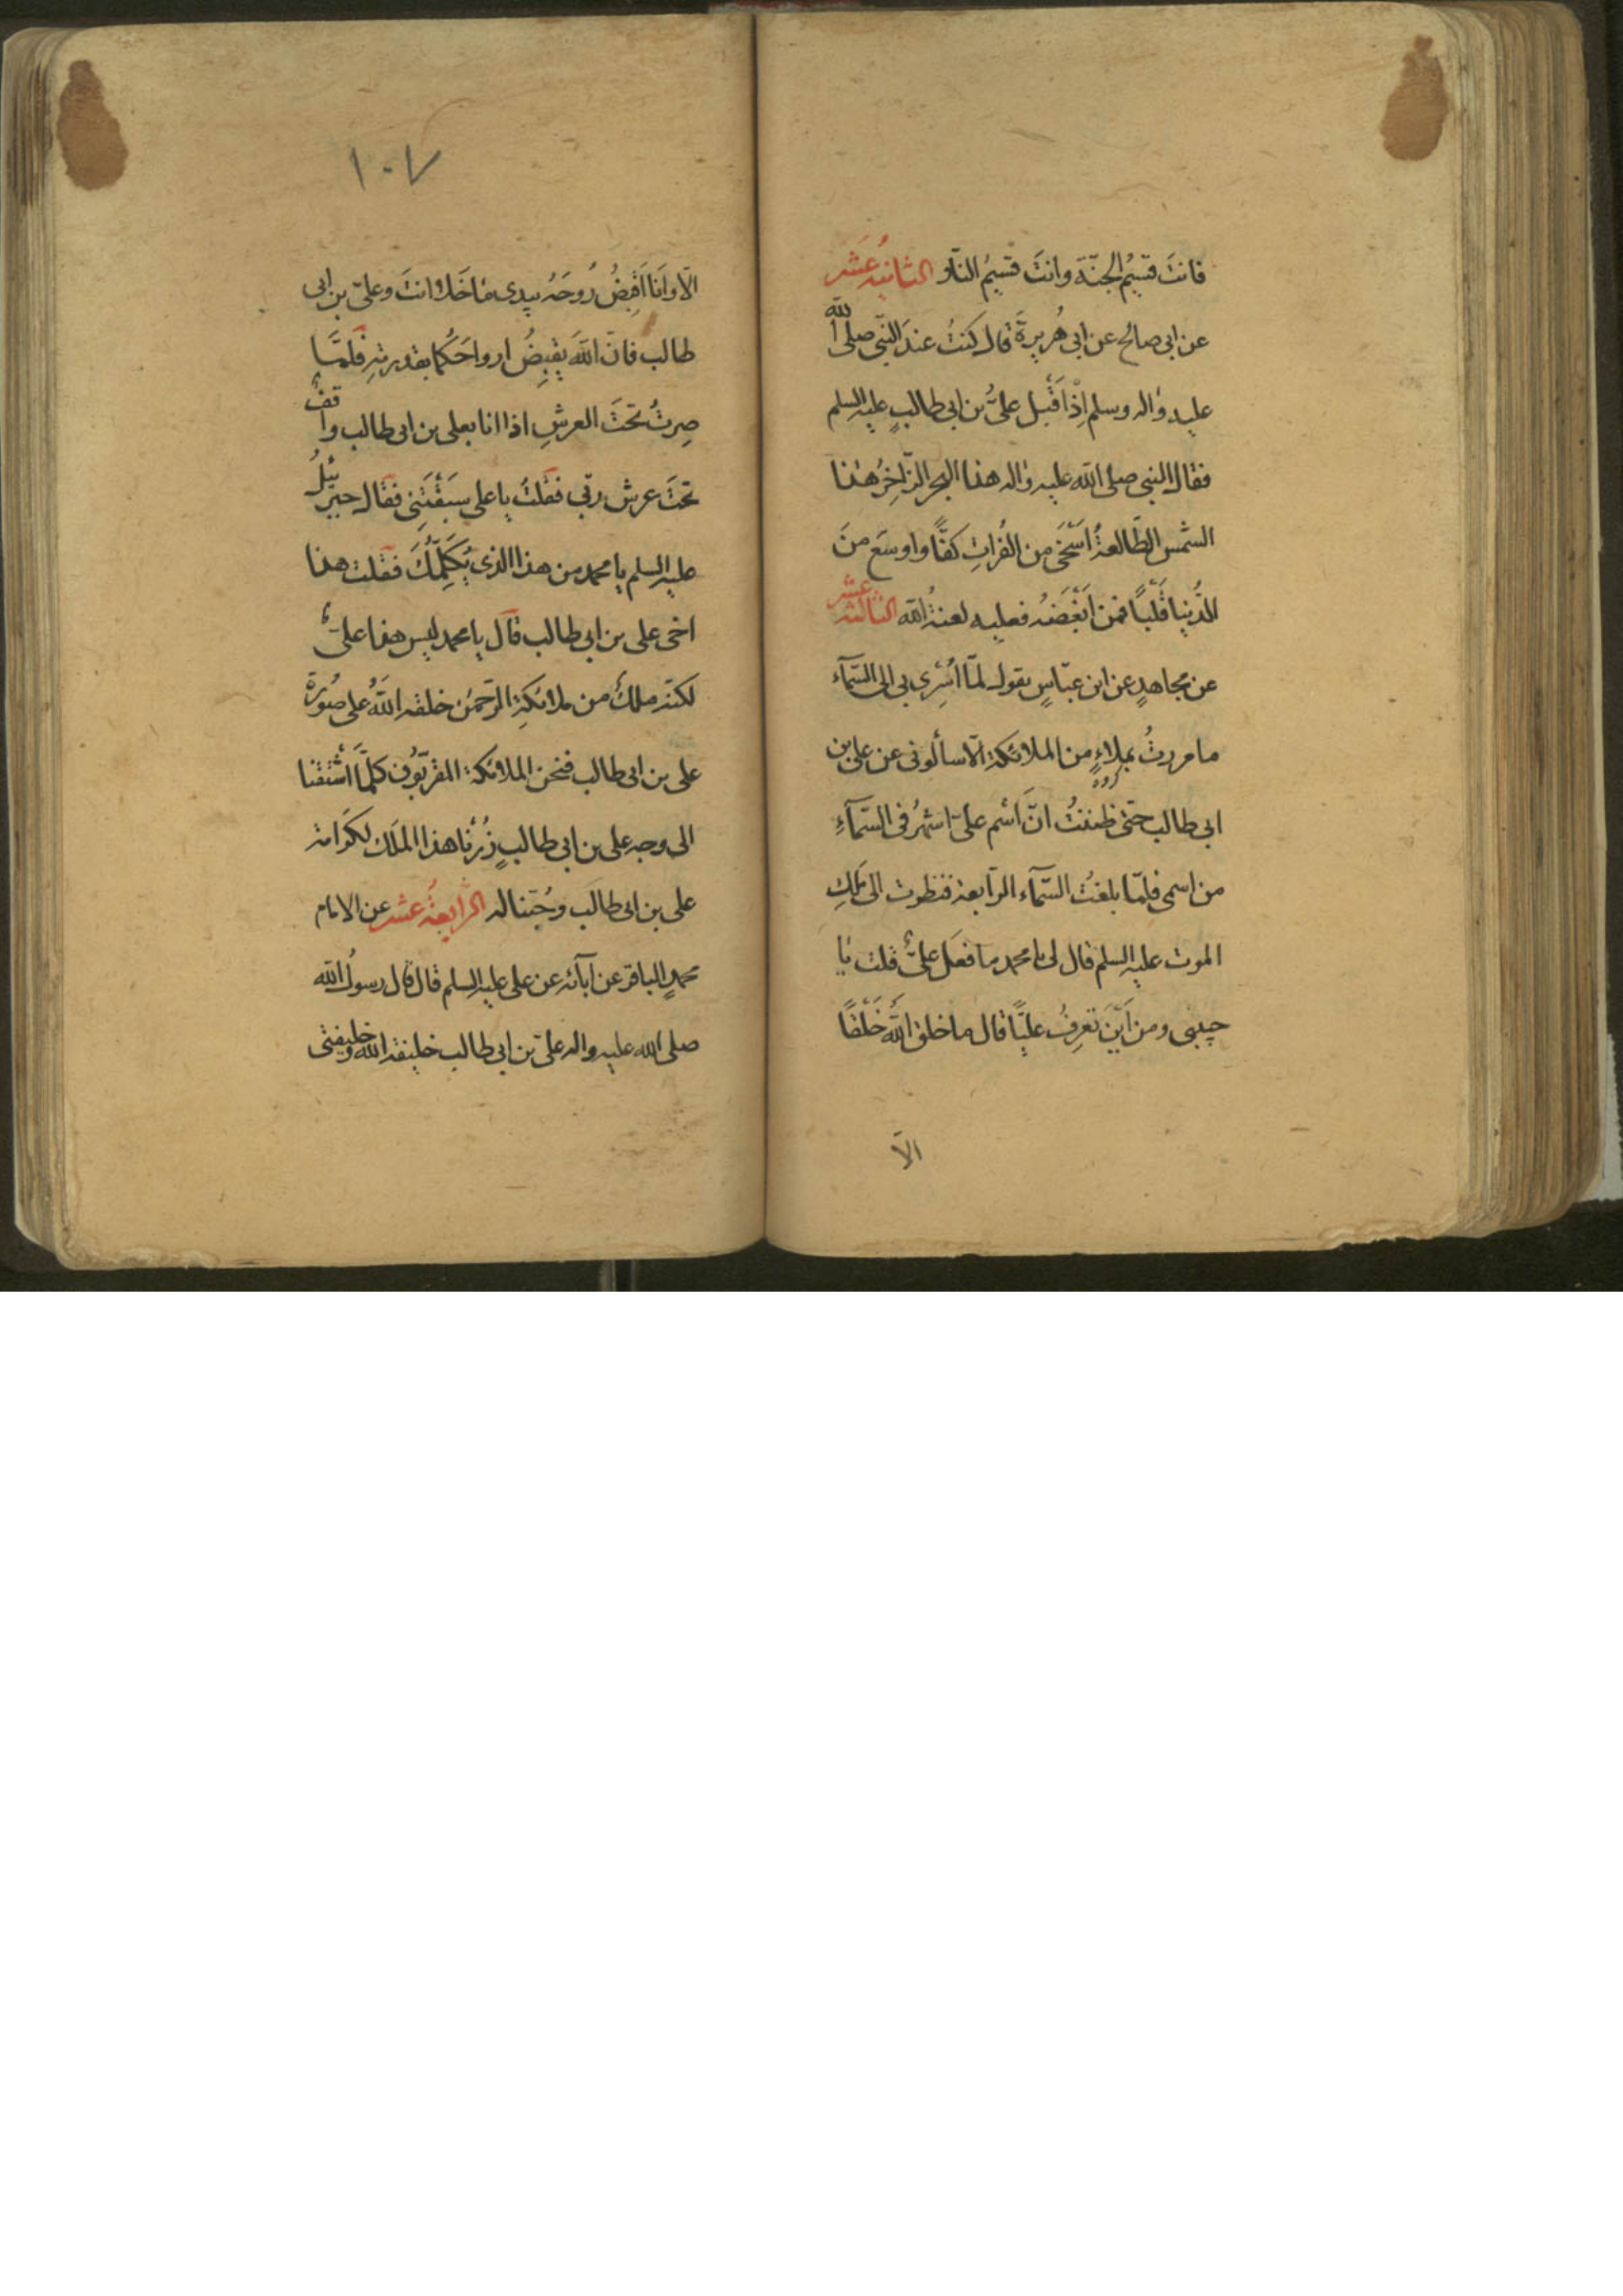 فانتَ قسيمُ الجنّة وانتَ قسيمُ النّار الثانيةُ عشر
عن ابى صالح عن ابى هُريرةَ قال كنتُ عندَ النّبى صلى الله
عليه واله وسلم اِذْ اَقْبل علىُّ بن ابى طالبٍ عليه السلم
فقال النبى صلى الله عليه واله هذا البحر الزّاخرُ هذا
الشمس الطّالعةُ اَسْخَى من الفُراتِ كفًّا واوسَع منَ
الدُّنيا قَلْبًا فمن اَبْغَضَهُ فعليه لعنةُ الله الثالثة عشر
عن مجاهدٍ عن ابن عبّاسٍ يقول لمّا اُسْرِى بى الى السّمآء
ما مررتُ بملاءٍ من الملائكة الّا سألونى عن على بن
ابى طالب حتى ظننتُ انَّ اَسْم على اشهرُ فى السّمآءِ
من اسمى فلمّا بلغتُ السّمآء الرّابعة فنظرت الى مَلَكِ
الموت عليه السلم قال لى يا محمد ما فعَل علىٌّ قلت يا
حبيبى ومن اَيْنَ تعرِفُ عليًّا قال ما خلق اللّهُ خَلْقًا
الّا
١٠٧
الّا واَنَا اَقْبِضُ رُوحَهُ بيدى ما خَلا انتَ وعلىّ بن ابى
طالب فانّ اللّهَ يقبِضُ ارواحَكُما بقدرتهِ فلمّا
صِرتُ تحتَ العرشِ اذا انا بعلى بن ابى طالب واقفٌ
تحتَ عرش ربّى فقلتُ يا على سبَقْتَنِى فقال جبرئيلُ
عليه السلم يا محمد من هذا الذى يُكَلِّمُكَ فقلت هذا
اخى على بن ابى طالب قال يا محمد ليس هذا علىٌّ
لكنّه ملكٌ من ملائكةِ الرّحمٰن خلقه اللّهُ على صُورَة
على بن ابى طالب فنحن الملائكة المقرّبُون كلّما اَشْتَقْنا
الى وجه على بن ابى طالبٍ زُرْنا هذا المَلَك لكَرَامة
على بن ابى طالب وحُبّنا له الرّابعةُ عشر عن الامام
محمدٍ الباقر عن ابآئه عن على عليه السلم قال قال رسولُ الله
صلى الله عليه واله على بن ابى طالب خليفة الله وخليفتى